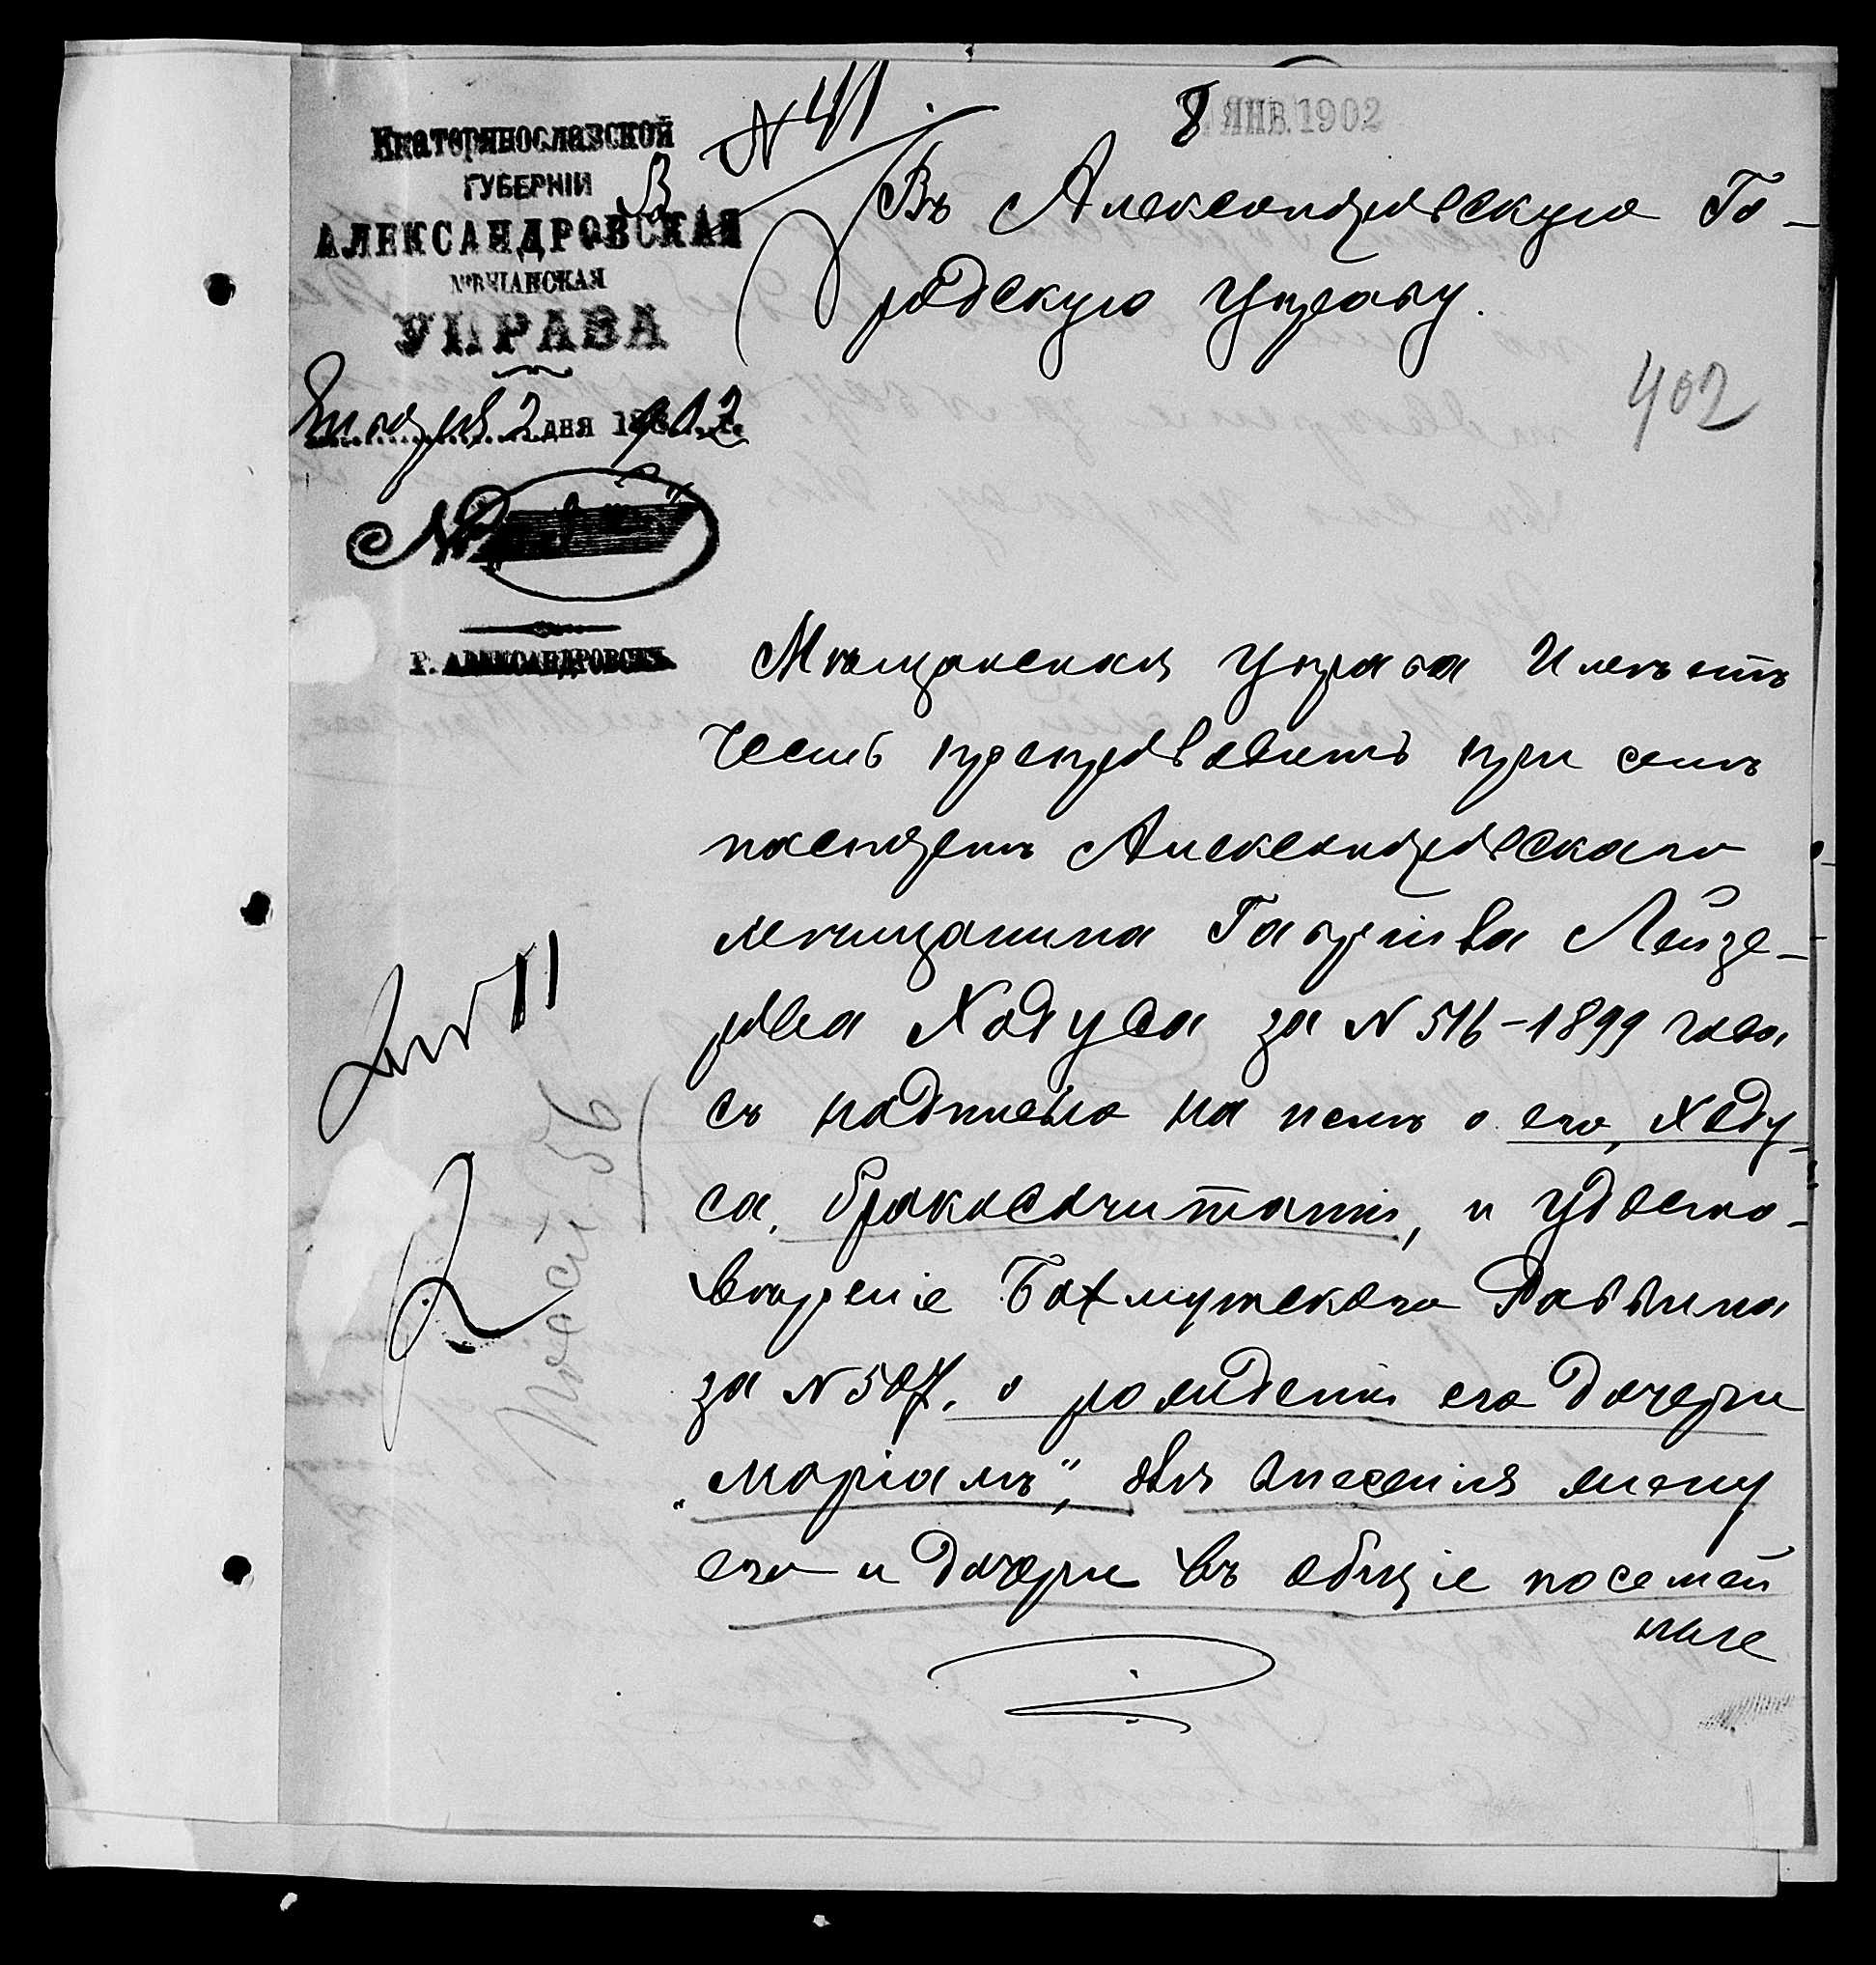 Екатеринославской
ГУБЕРНІИ
АЛЕКСАНДРОВСКАЯ
МѢЩАНСКАЯ
УПРАВА
Января 2 дня 1902 г.
№
Г. АЛЕКСАНДРОВСКЪ.
N 41
8 ЯНВ. 1902
Въ Александровскую Го-
родскую Управу.
402
Мѣщанская Управа Имѣетъ
честь препроводить при семъ
паспортъ Александровскаго
мѣщанина Гавріила Лейзе-
рова Ходуса за N 516-1899 года
съ надписью на немъ о его, Ходу-
са, бракосочитаніи, и удосто-
вѣреніе Бахмутскаго Раввина
за N 507, о рожденіи его дочери
„Маріамъ", для внесенія жену
его и дочери въ общіе посемей
ные
Посем. 56